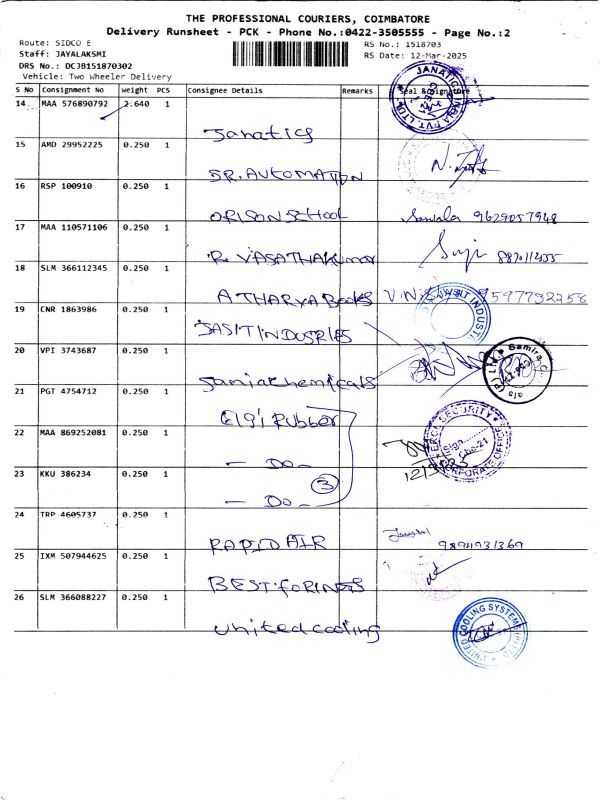 THE PROFESSIONAL COURIERS, COIMBATORE
Delivery Runsheet - PCK - Phone No.:0422-3505555 - Page No.:2
Route: SIDCO E
RS No.: 1518703
Staff: JAYALAKSMI
RS Date: 12-Mar-2025
DRS No.: DCJB151870302
Vehicle: Two Wheeler Delivery
S No Consignment No Weight PCS Consignee Details Remarks Seal & Signature
14 MAA 576890792 2.640 1
Janatics
JANATICS INDIA PVT. LTD
15 AMD 29952225 0.250 1
SR. AUTOMATION
16 RSP 100910 0.250 1
ORISON SCHOOL 9629057948
17 MAA 110571106 0.250 1
R. VASATHAKumar
18 SLM 366112345 0.250 1
ATHARVA Books
19 CNR 1863986 0.250 1
SASIT INDUSRIES
20 VPI 3743687 0.250 1
Samirachemicals
21 PGT 4754712 0.250 1
Elgi Rubber
SECURITY
Sign
Cbe-21
CORPORATE OFFICE
22 MAA 869252081 0.250 1
— Do —
23 KKU 386234 0.250 1
— Do —
3
24 TRP 4605737 0.250 1
RAPID AIR
25 IXM 507944625 0.250 1
BEST FORINGS
26 SLM 366088227 0.250 1
united cooling
UNITED COOLING SYSTEMS (P) LTD